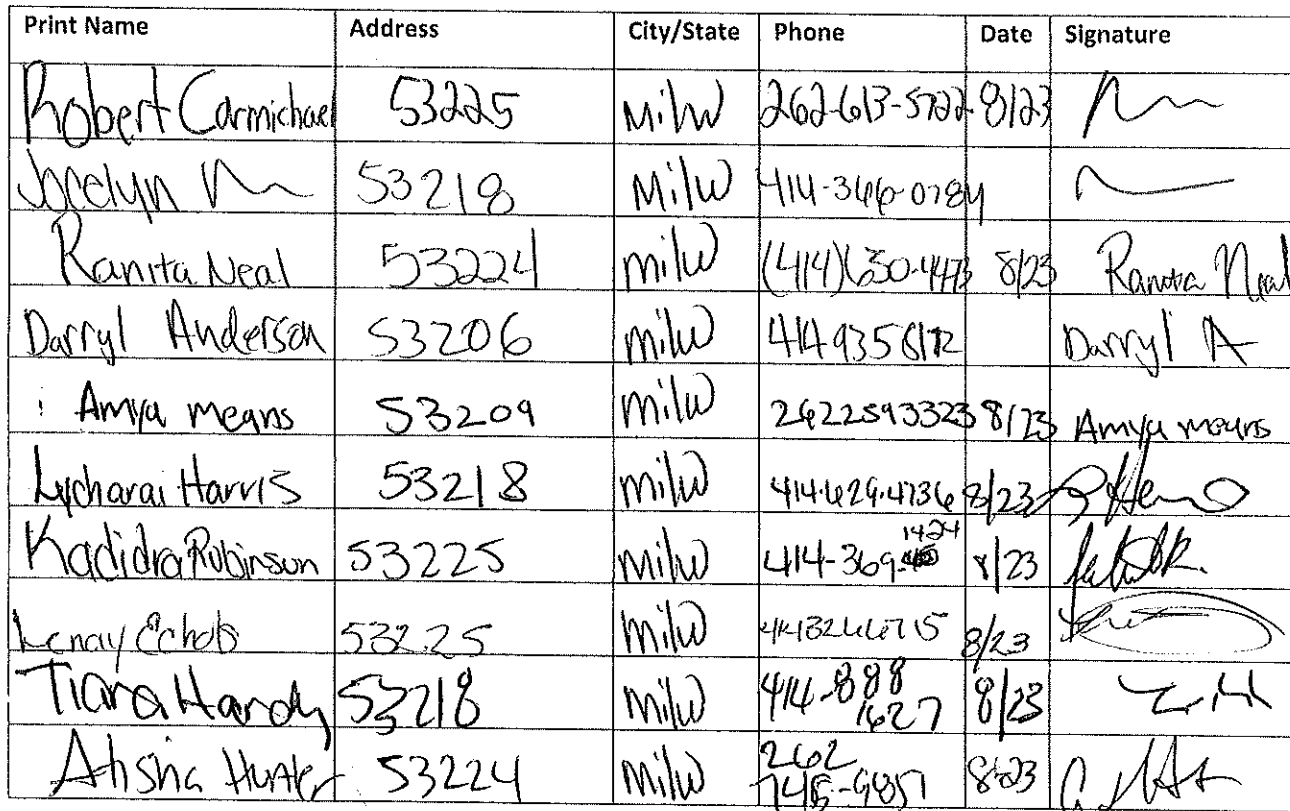 Print Name Address City/State Phone Date Signature
Robert Carmichael 53225 Milw 262-613-5722 8/23
Jocelyn 53218 Milw 414-366-0784
Ranita Neal 53224 milw (414)630-4473 8/23 Ranita Neal
Darryl Anderson 53206 milw 414 9356172 Darryl A
Amya means 53209 milw 2622593323 8/23 Amya means
Lycharai Harris 53218 milw 414.629.4736 8/23
Kadidra Robinson 53225 milw 414-369-1424 8/23
Lenay Echols 53225 milw 8/23
Tiara Hardy 53218 milw 414-888 1627 8/23
Hunter 53224 milw 262 8-23